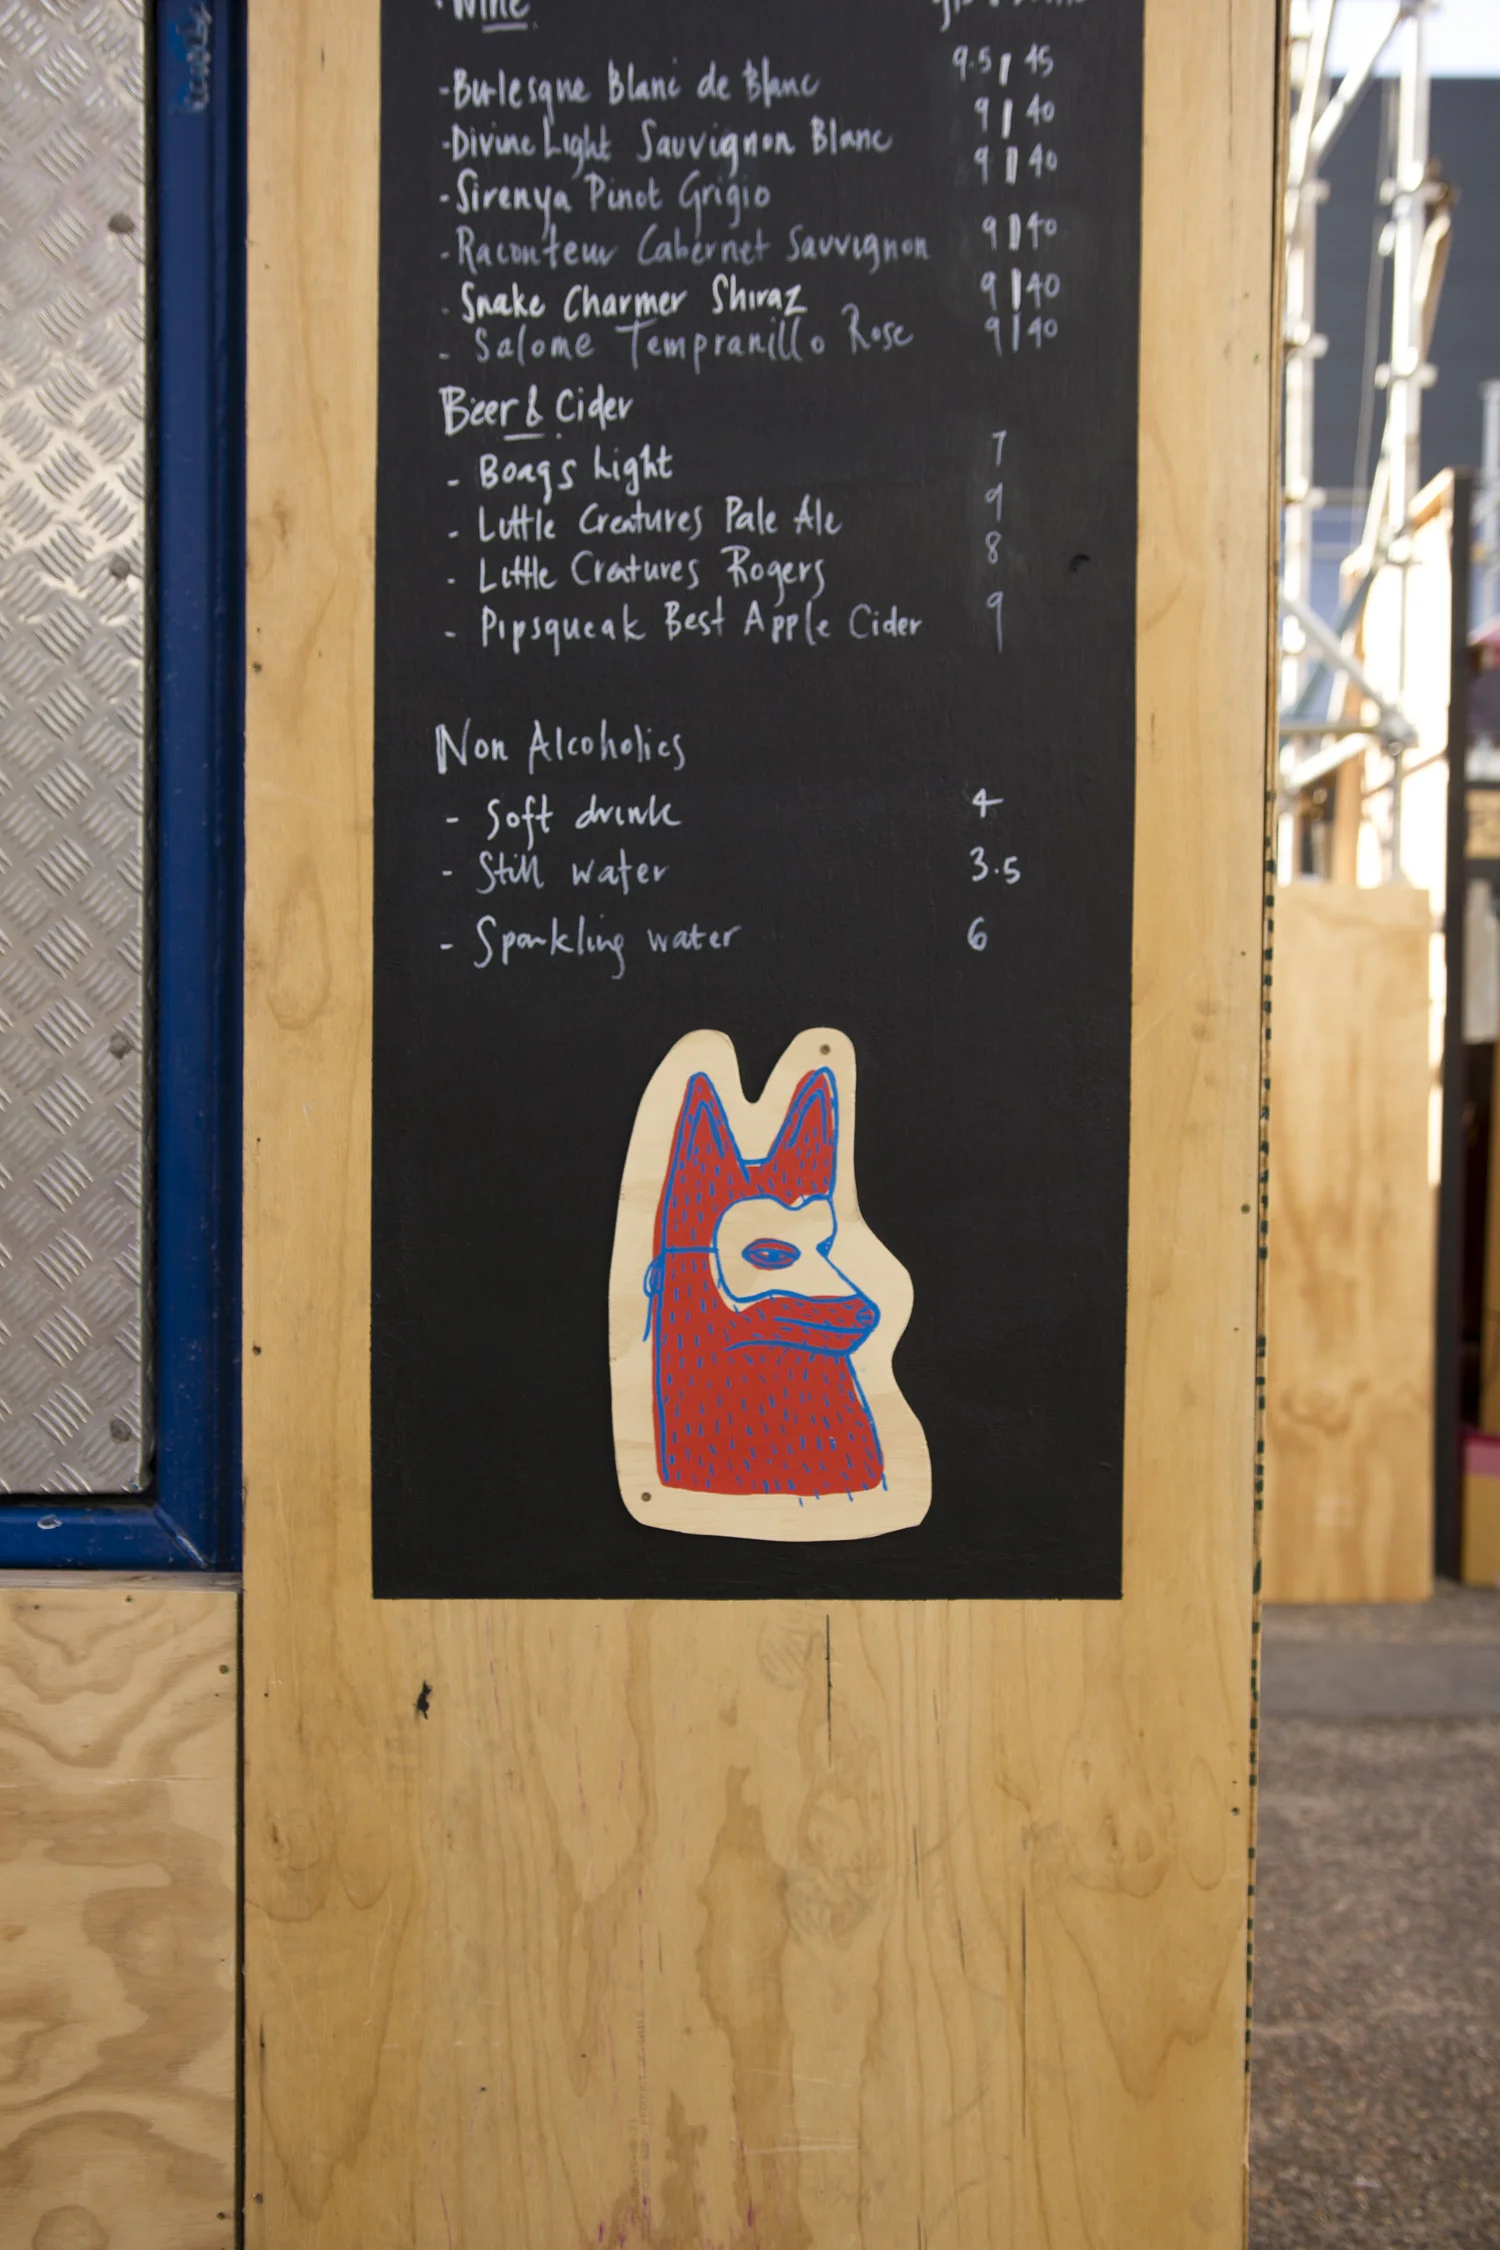 · Wine
- Burlesque Blanc de Blanc 9.5 | 45
- Divine Light Sauvignon Blanc 9 | 40
- Sirenya Pinot Grigio 9 | 40
- Raconteur Cabernet Sauvignon 9 | 40
- Snake Charmer Shiraz 9 | 40
- Salome Tempranillo Rose 9 | 40
Beer & Cider
- Boags Light 7
- Little Creatures Pale Ale 9
- Little Creatures Rogers 8
- Pipsqueak Best Apple Cider 9
Non Alcoholics
- Soft drink 4
- Still water 3.5
- Sparkling water 6